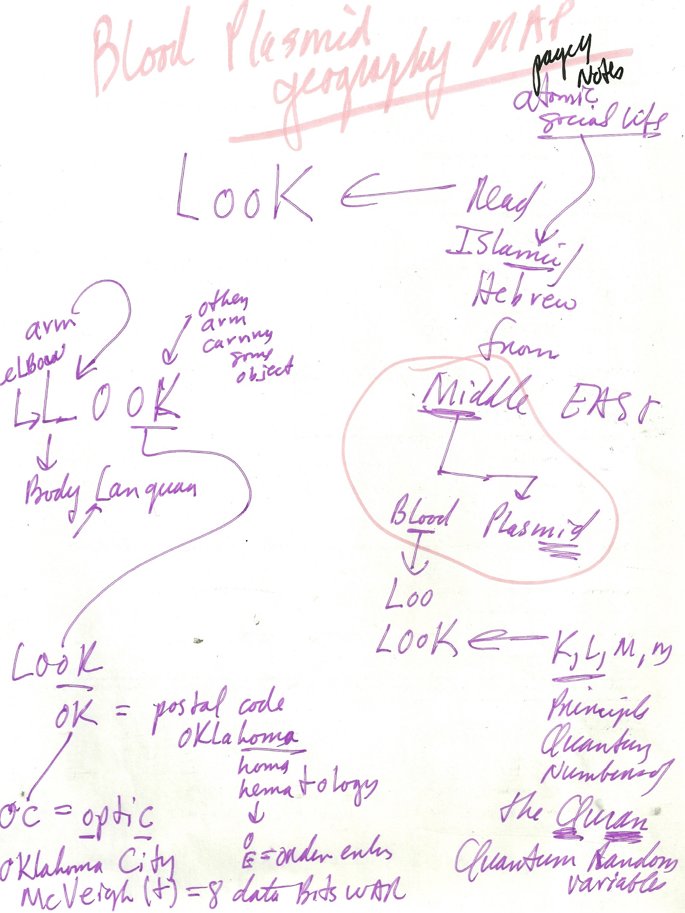 Blood Plasmid
geography MAP
Notes
atomic
social life
LOOK
Read
ISlamic/
Hebrew
from
Middle EAST
Blood Plasmid
Loo
LOOK
K, L, M, N
Principle
Quantum
Numbers of
the Quran
Quantum Random
variables
arm
elBow
other
arm
carrying
some
object
LL O OK
Body Language
LOOK
OK = postal code
OKlahoma
homa
hematology
OC = optic
OE = order enters
OKlahoma City
McVeigh (t) = 8 data Bits WAR